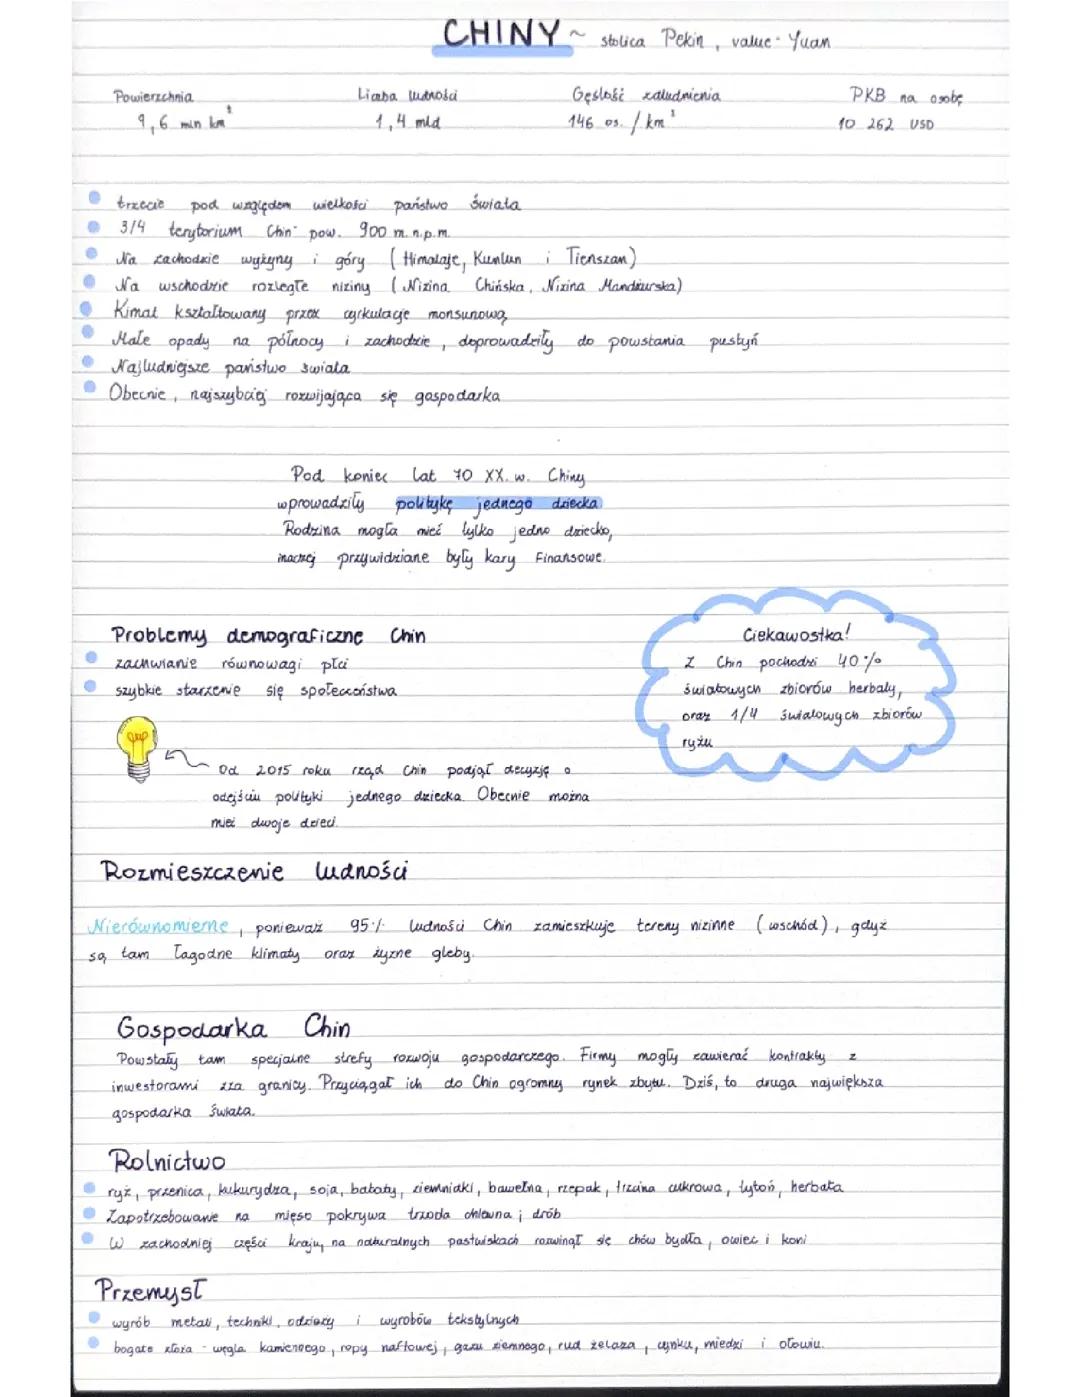 CHINY ~ stolica Pekin, value - Yuan
Powierzchnia Liczba ludności Gęstość zaludnienia PKB na osobę
9,6 mln km² 1,4 mld 146 os. / km² 10 262 USD
trzecie pod względem wielkości państwo świata
3/4 terytorium Chin pow. 900 m.n.p.m.
Na zachodzie wyżyny i góry (Himalaje, Kunlun i Tienszan)
Na wschodzie rozległe niziny (Nizina Chińska, Nizina Mandżurska)
Kimat kształtowany przez cyrkulację monsunową
Małe opady na północy i zachodzie, doprowadziły do powstania pustyń
Najludniejsze państwo świata
Obecnie, najszybciej rozwijająca się gospodarka
Pod koniec lat 70 XX. w. Chiny
wprowadziły politykę jednego dziecka
Rodzina mogła mieć tylko jedno dziecko,
inaczej przywidziane były kary finansowe.
Problemy demograficzne Chin
zachwianie równowagi płci
szybkie starzenie się społeczeństwa
Ciekawostka!
Z Chin pochodzi 40%
światowych zbiorów herbaty,
oraz 1/4 światowych zbiorów
ryżu
Od 2015 roku rząd Chin podjął decyzję o
odejściu polityki jednego dziecka. Obecnie można
mieć dwoje dzieci.
Rozmieszczenie ludności
Nierównomierne, ponieważ 95% ludności Chin zamieszkuje tereny nizinne (wschód), gdyż
są tam łagodne klimaty oraz żyzne gleby.
Gospodarka Chin
Powstały tam specjalne strefy rozwoju gospodarczego. Firmy mogły zawierać kontrakty z
inwestorami zza granicy. Przyciągał ich do Chin ogromny rynek zbytu. Dziś, to druga największa
gospodarka świata.
Rolnictwo
ryż, przenica, kukurydza, soja, bataty, ziemniaki, bawełna, rzepak, trzcina cukrowa, tytoń, herbata
Zapotrzebowanie na mięso pokrywa trzoda chlewna i drób
W zachodniej części kraju, na naturalnych pastwiskach rozwinął się chów bydła, owiec i koni
Przemysł
wyrób metali, techniki, odzieży i wyrobów tekstylnych
bogate złoża - węgla kamiennego, ropy naftowej, gazu ziemnego, rud żelaza, cynku, miedzi i ołowiu.